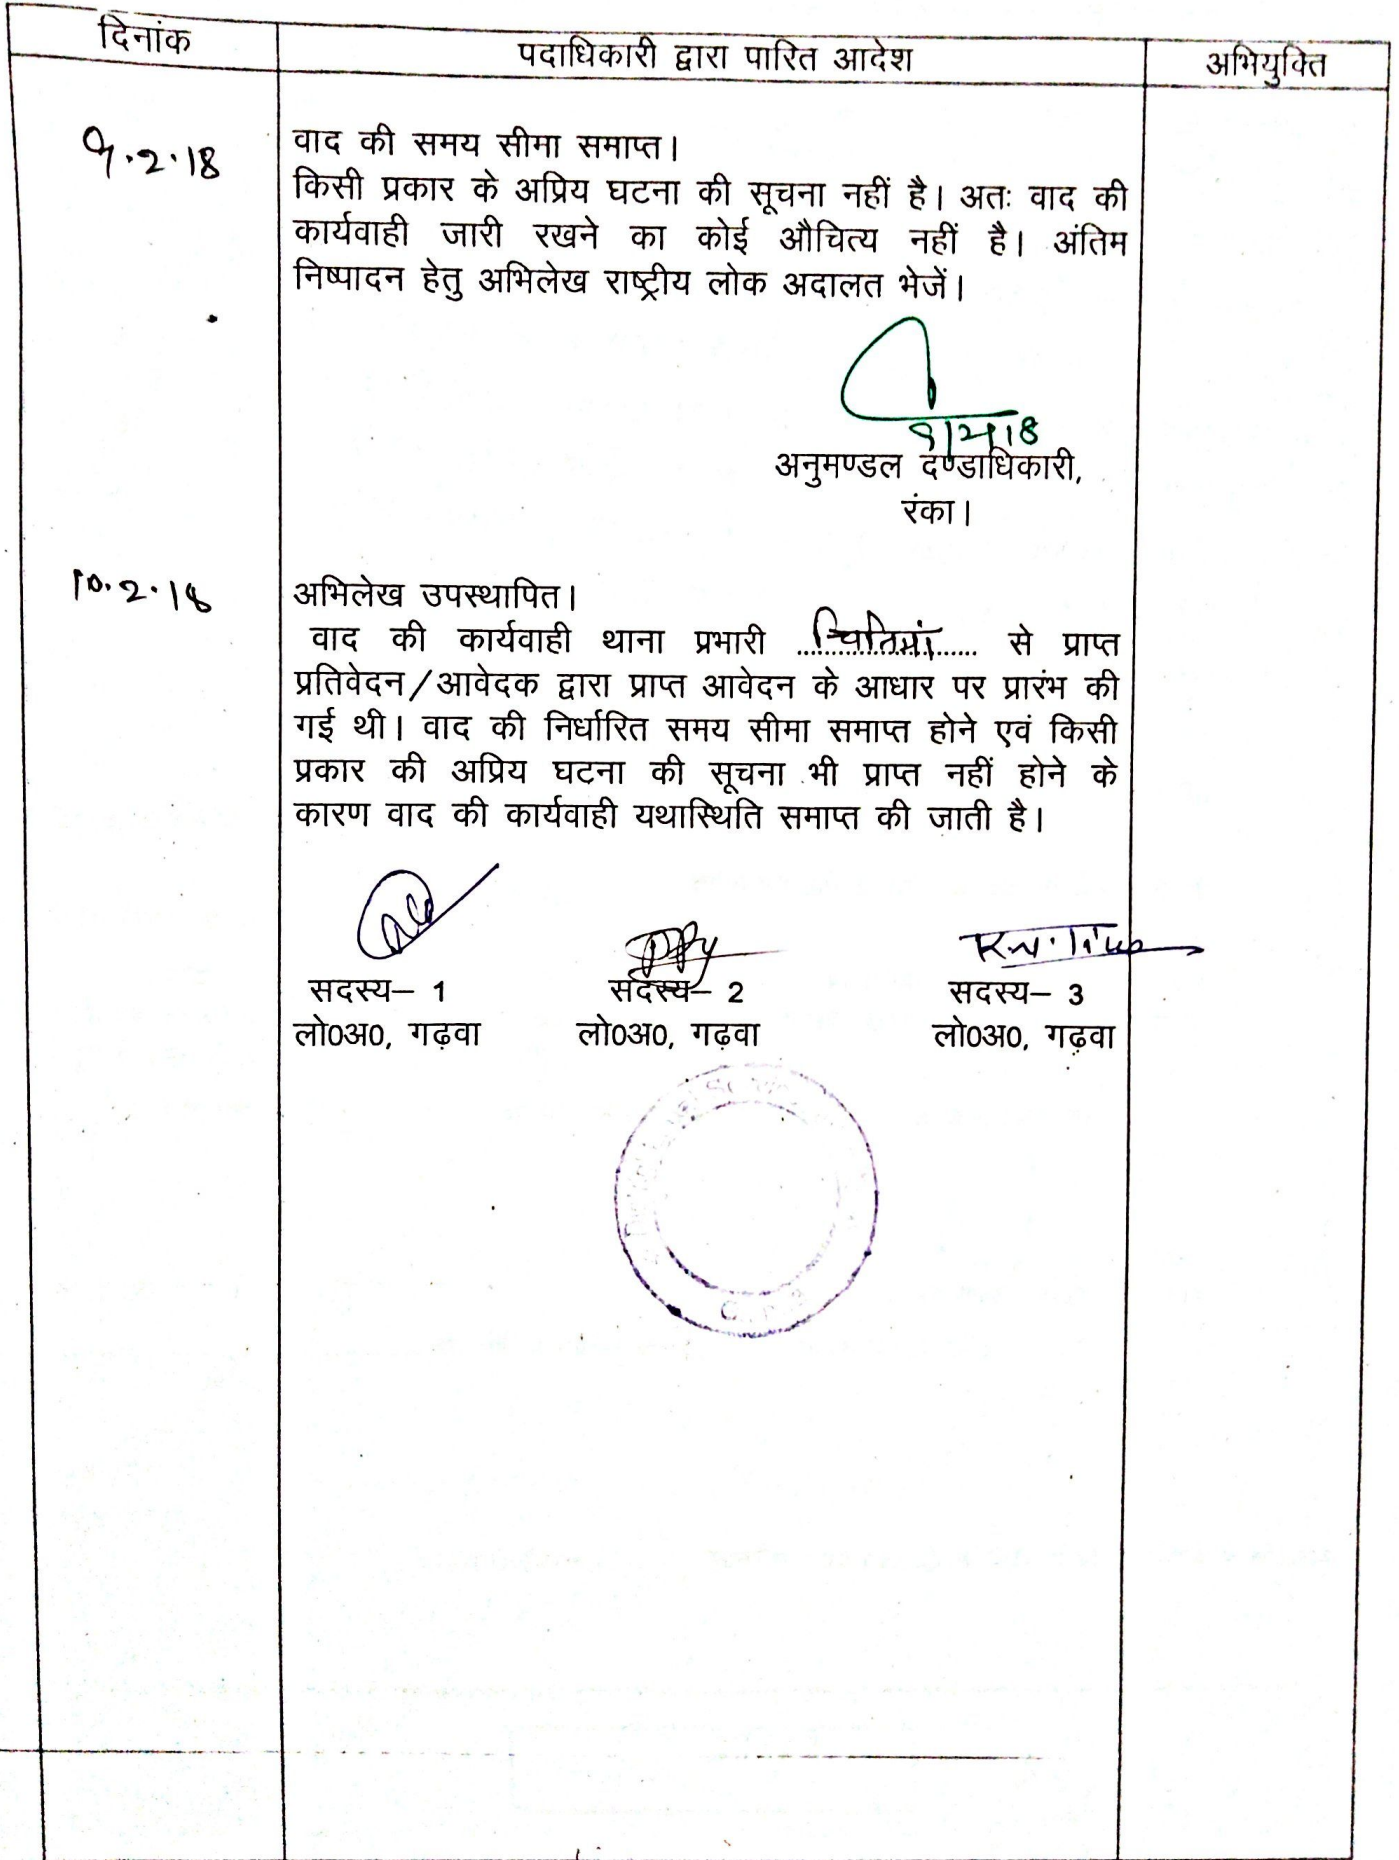 दिनांक
पदाधिकारी द्वारा पारित आदेश
अभियुक्ति
9.2.18
वाद की समय सीमा समाप्त।
किसी प्रकार के अप्रिय घटना की सूचना नहीं है। अतः वाद की
कार्यवाही जारी रखने का कोई औचित्य नहीं है। अंतिम
निष्पादन हेतु अभिलेख राष्ट्रीय लोक अदालत भेजें।
9/2/18
अनुमण्डल दण्डाधिकारी,
रंका।
10.2.18
अभिलेख उपस्थापित।
वाद की कार्यवाही थाना प्रभारी ................ से प्राप्त
प्रतिवेदन/आवेदक द्वारा प्राप्त आवेदन के आधार पर प्रारंभ की
गई थी। वाद की निर्धारित समय सीमा समाप्त होने एवं किसी
प्रकार की अप्रिय घटना की सूचना भी प्राप्त नहीं होने के
कारण वाद की कार्यवाही यथास्थिति समाप्त की जाती है।
सदस्य– 1 सदस्य– 2 सदस्य– 3
लो0अ0, गढ़वा लो0अ0, गढ़वा लो0अ0, गढ़वा